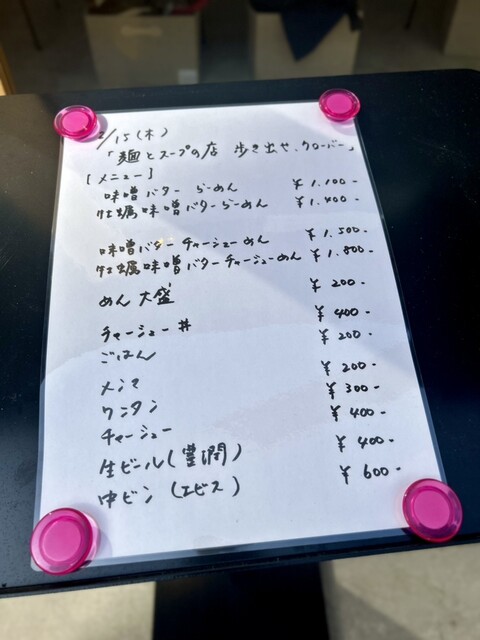 2/15(木)
「麺とスープの店 歩き出せ、クローバー」
[メニュー]
味噌バターらーめん ¥1.100-
牡蠣味噌バターらーめん ¥1.400-
味噌バターチャーシューめん ¥1.500-
牡蠣味噌バターチャーシューめん ¥1.800-
めん大盛 ¥200-
チャーシュー丼 ¥400-
ごはん ¥200-
メンマ ¥200-
ワンタン ¥300-
チャーシュー ¥400-
生ビール(豊潤) ¥400-
中ビン(エビス) ¥600-